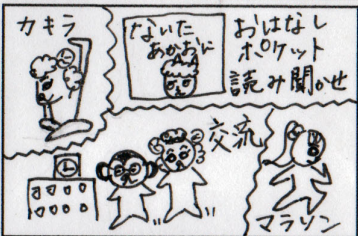 カキラ
ないた
あかおに
おはなし
ポケット
読み聞かせ
交流
マラソン